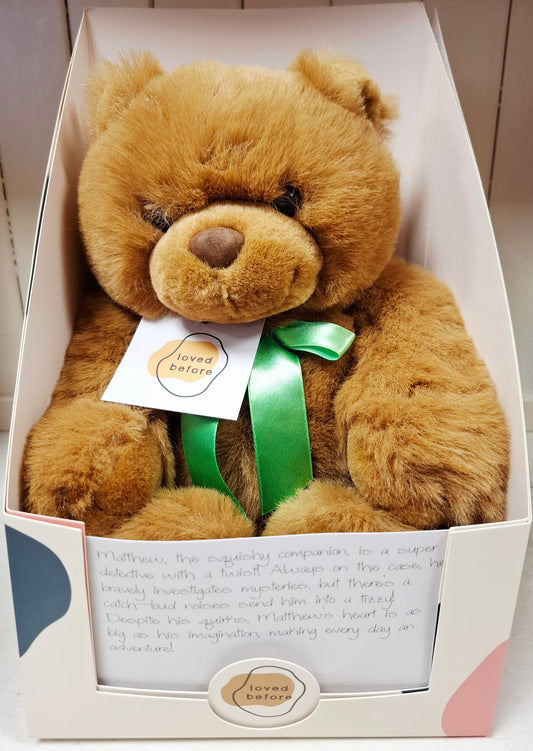 loved
before
Matthew, the squishy companion, is a super
detective with a twist! Always on the case, he
bravely investigates mysteries, but there's a
catch—loud noises send him into a tizzy!
Despite his quirks, Matthew's heart is as
big as his imagination, making every day an
adventure!
loved
before